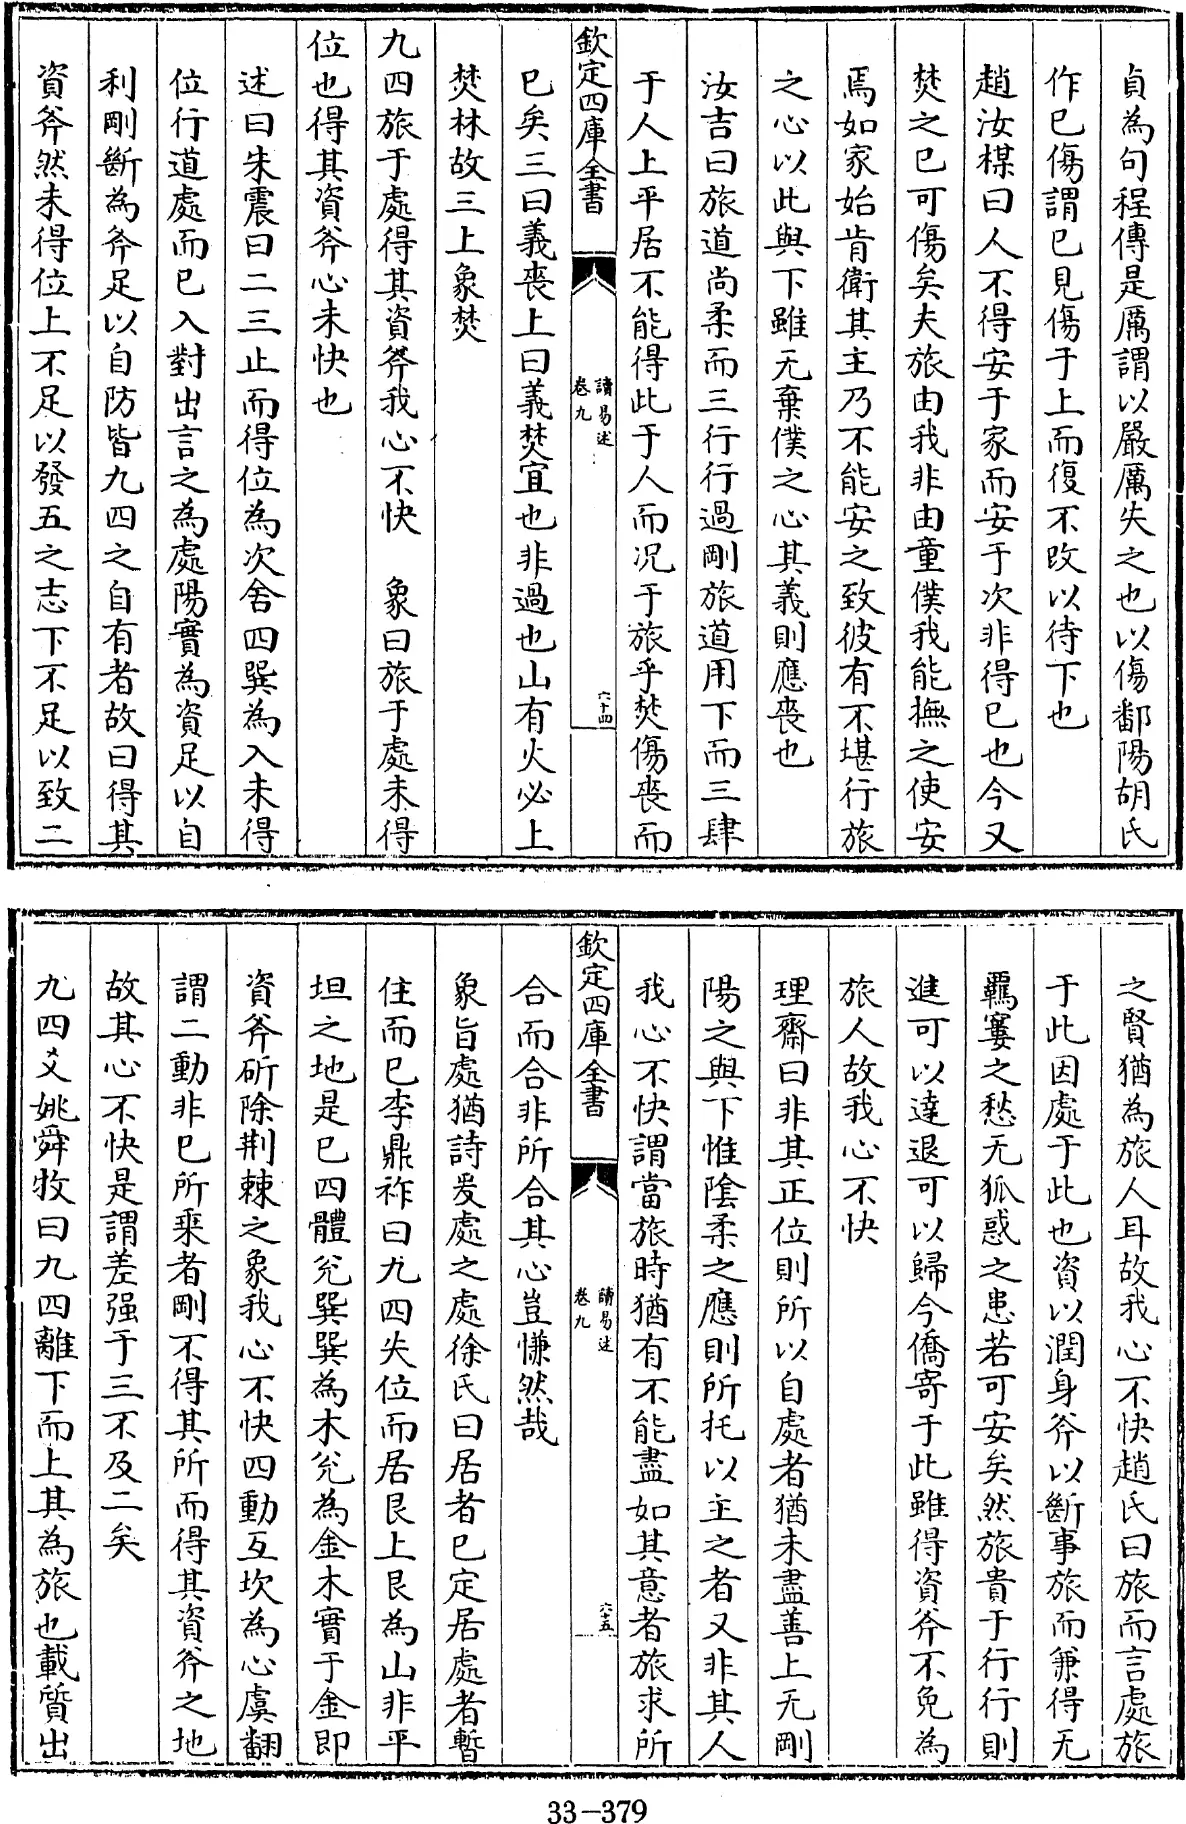 貞為句程傳是厲謂以嚴厲失之也以傷鄱陽胡氏
作已傷謂已見傷于上而復不改以待下也
趙汝楳曰人不得安于家而安于次非得已也今又
焚之已可傷矣夫旅由我非由童僕我能撫之使安
焉如家始肯衛其主乃不能安之致彼有不堪行旅
之心以此與下雖无棄僕之心其義則應喪也
汝吉曰旅道尚柔而三行行過剛旅道用下而三肆
于人上平居不能得此于人而況于旅乎焚傷喪而
欽定四庫全書
讀易述
卷九
六十四
已矣三曰義喪上曰義焚宜也非過也山有火必上
焚林故三上象焚
九四旅于處得其資斧我心不快　象曰旅于處未得
位也得其資斧心未快也
述曰朱震曰二三止而得位為次舍四巽為入未得
位行道處而已入對出言之為處陽實為資足以自
利剛斷為斧足以自防皆九四之自有者故曰得其
資斧然未得位上不足以發五之志下不足以致二
之賢猶為旅人耳故我心不快趙氏曰旅而言處旅
于此因處于此也資以潤身斧以斷事旅而兼得无
羈窶之愁无狐惑之患若可安矣然旅貴于行行則
進可以達退可以歸今僑寄于此雖得資斧不免為
旅人故我心不快
理齋曰非其正位則所以自處者猶未盡善上无剛
陽之與下惟陰柔之應則所托以主之者又非其人
我心不快謂當旅時猶有不能盡如其意者旅求所
欽定四庫全書
讀易述
卷九
六十五
合而合非所合其心豈慊然哉
象旨處猶詩爰處之處徐氏曰居者已定居處者暫
住而已李鼎祚曰九四失位而居艮上艮為山非平
坦之地是已四體兊巽巽為木兊為金木實于金即
資斧斫除荆棘之象我心不快四動互坎為心虞翻
謂二動非已所乘者剛不得其所而得其資斧之地
故其心不快是謂差强于三不及二矣
九四爻姚舜牧曰九四離下而上其為旅也載質出
33-379